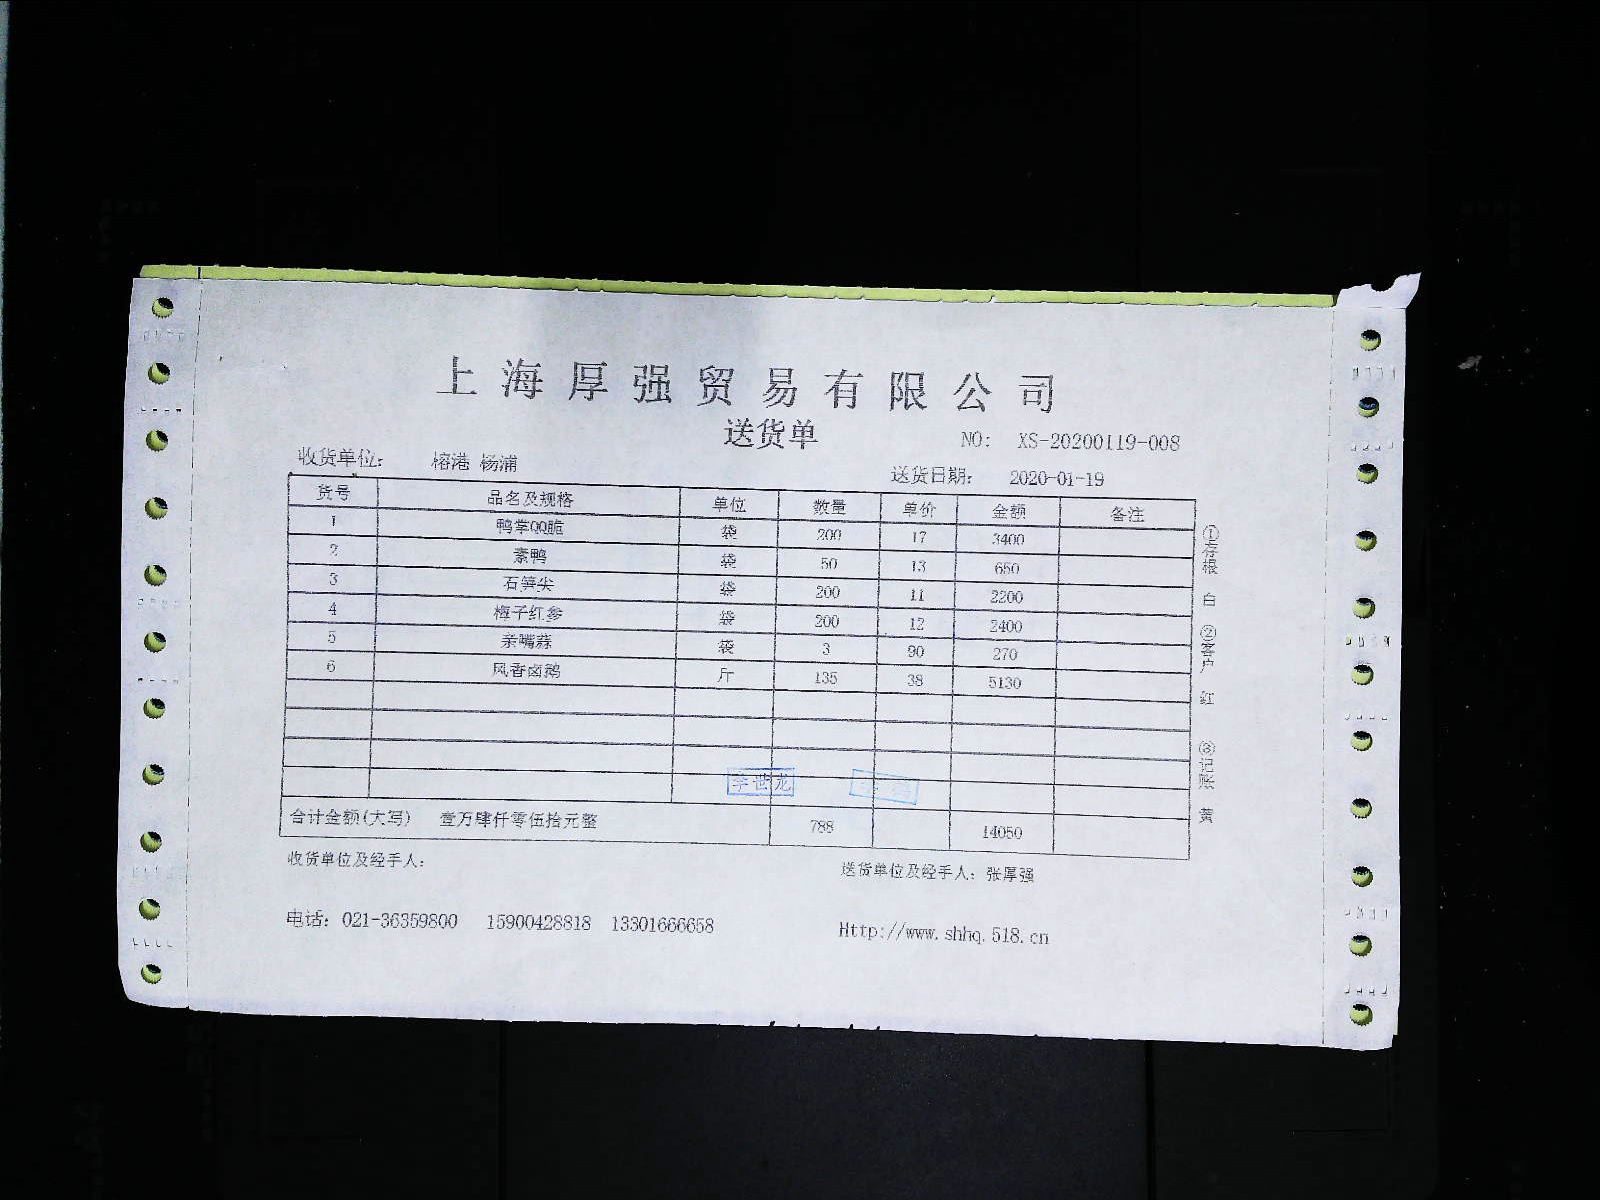 上海厚强贸易有限公司
送货单
NO: XS-20200119-008
收货单位: 榕港 杨浦
送货日期: 2020-01-19
货号 品名及规格 单位 数量 单价 金额 备注
1 鸭掌QQ脆 袋 200 17 3400
2 素鸭 袋 50 13 650
3 石笋尖 袋 200 11 2200
4 梅子红参 袋 200 12 2400
5 亲嘴蒜 袋 3 90 270
6 风香卤鹅 斤 135 38 5130
李世龙
合计金额(大写) 壹万肆仟零伍拾元整 788 14050
收货单位及经手人:
送货单位及经手人: 张厚强
电话: 021-36359800 15900428818 13301666658
Http://www.shhq.518.cn
①存根 白 ②客户 红 ③记账 黄